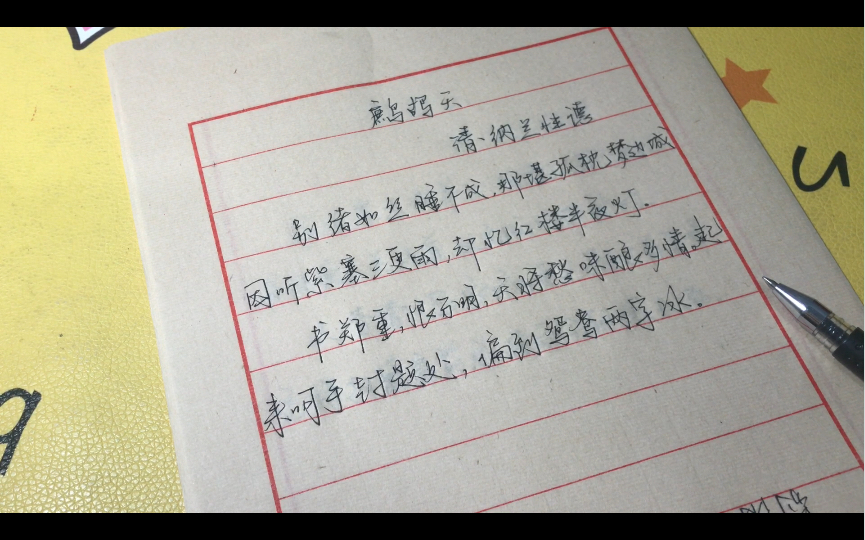 鹧鸪天
清·纳兰性德
别绪如丝睡不成,那堪孤枕梦边城
因听紫塞三更雨,却忆红楼半夜灯.
书郑重,恨分明,天将愁味酿多情。起
来呵手封题处,偏到鸳鸯两字冰.